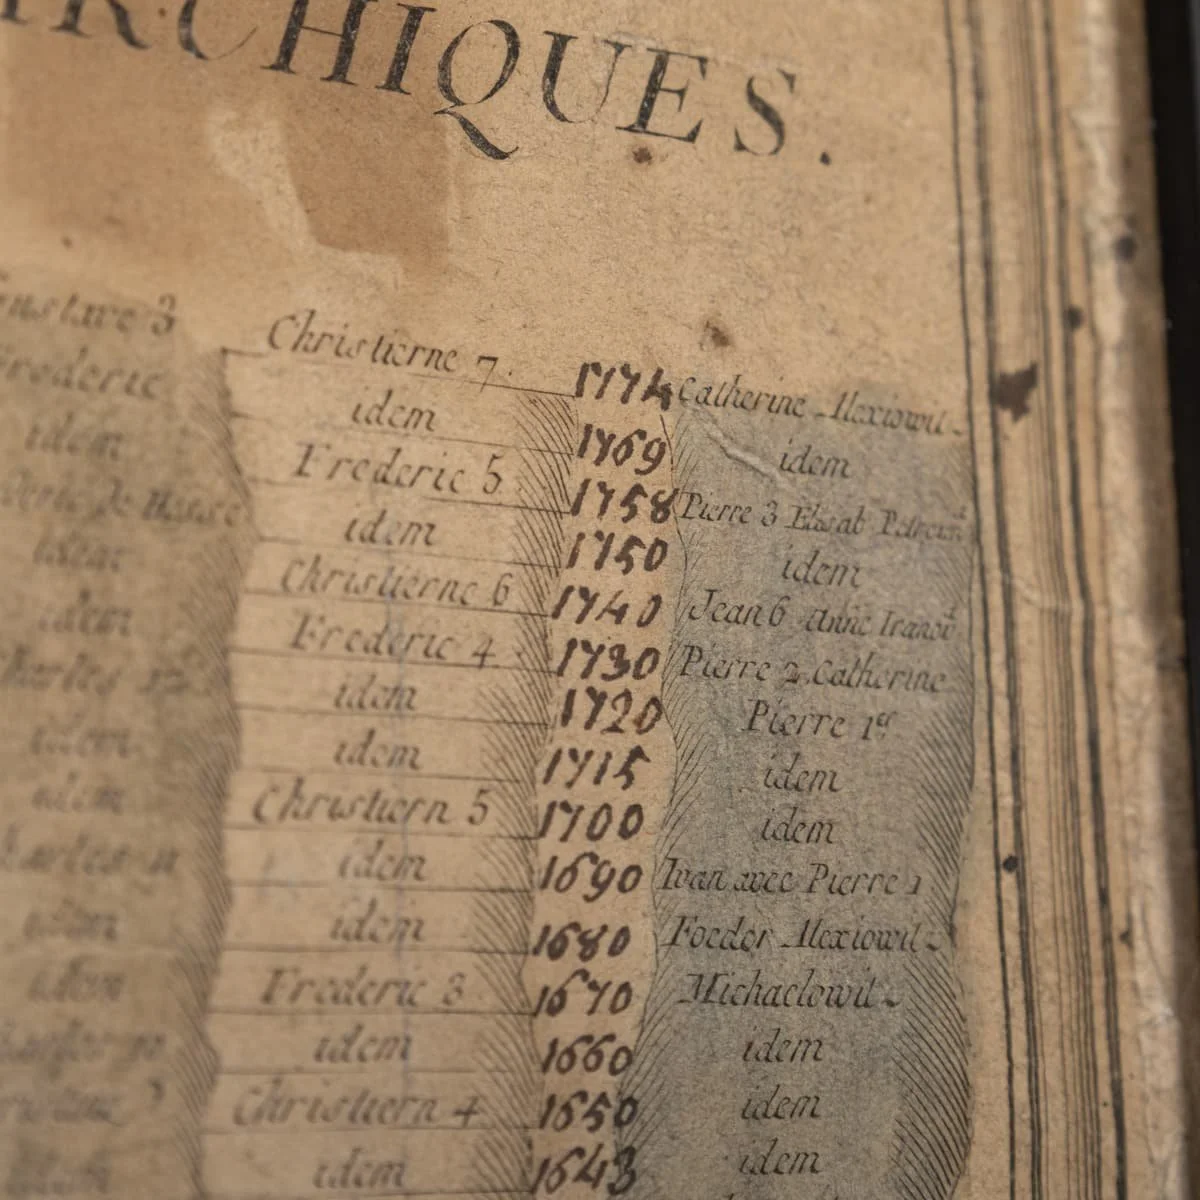 RCHIQUES.
Gustave 3 Christierne 7. 1774 Catherine Alexiowit
Frederic idem 1769 idem
idem Frederic 5 1758 Pierre 3 Elisab Petrown
de Hesse idem 1750 idem
idem Christierne 6 1740 Jean 6 Anne Iwanow
idem Frederic 4 1730 Pierre 2. Catherine
Charles 12 idem 1720 Pierre 1er
idem idem 1715 idem
idem Christiern 5 1700 idem
Charles 11 idem 1690 Ivan avec Pierre 1
idem idem 1680 Foedor Alexiowit
idem Frederic 3 1670 Michaelowit
idem 1660 idem
Christiern 4 1650 idem
idem 1643 idem